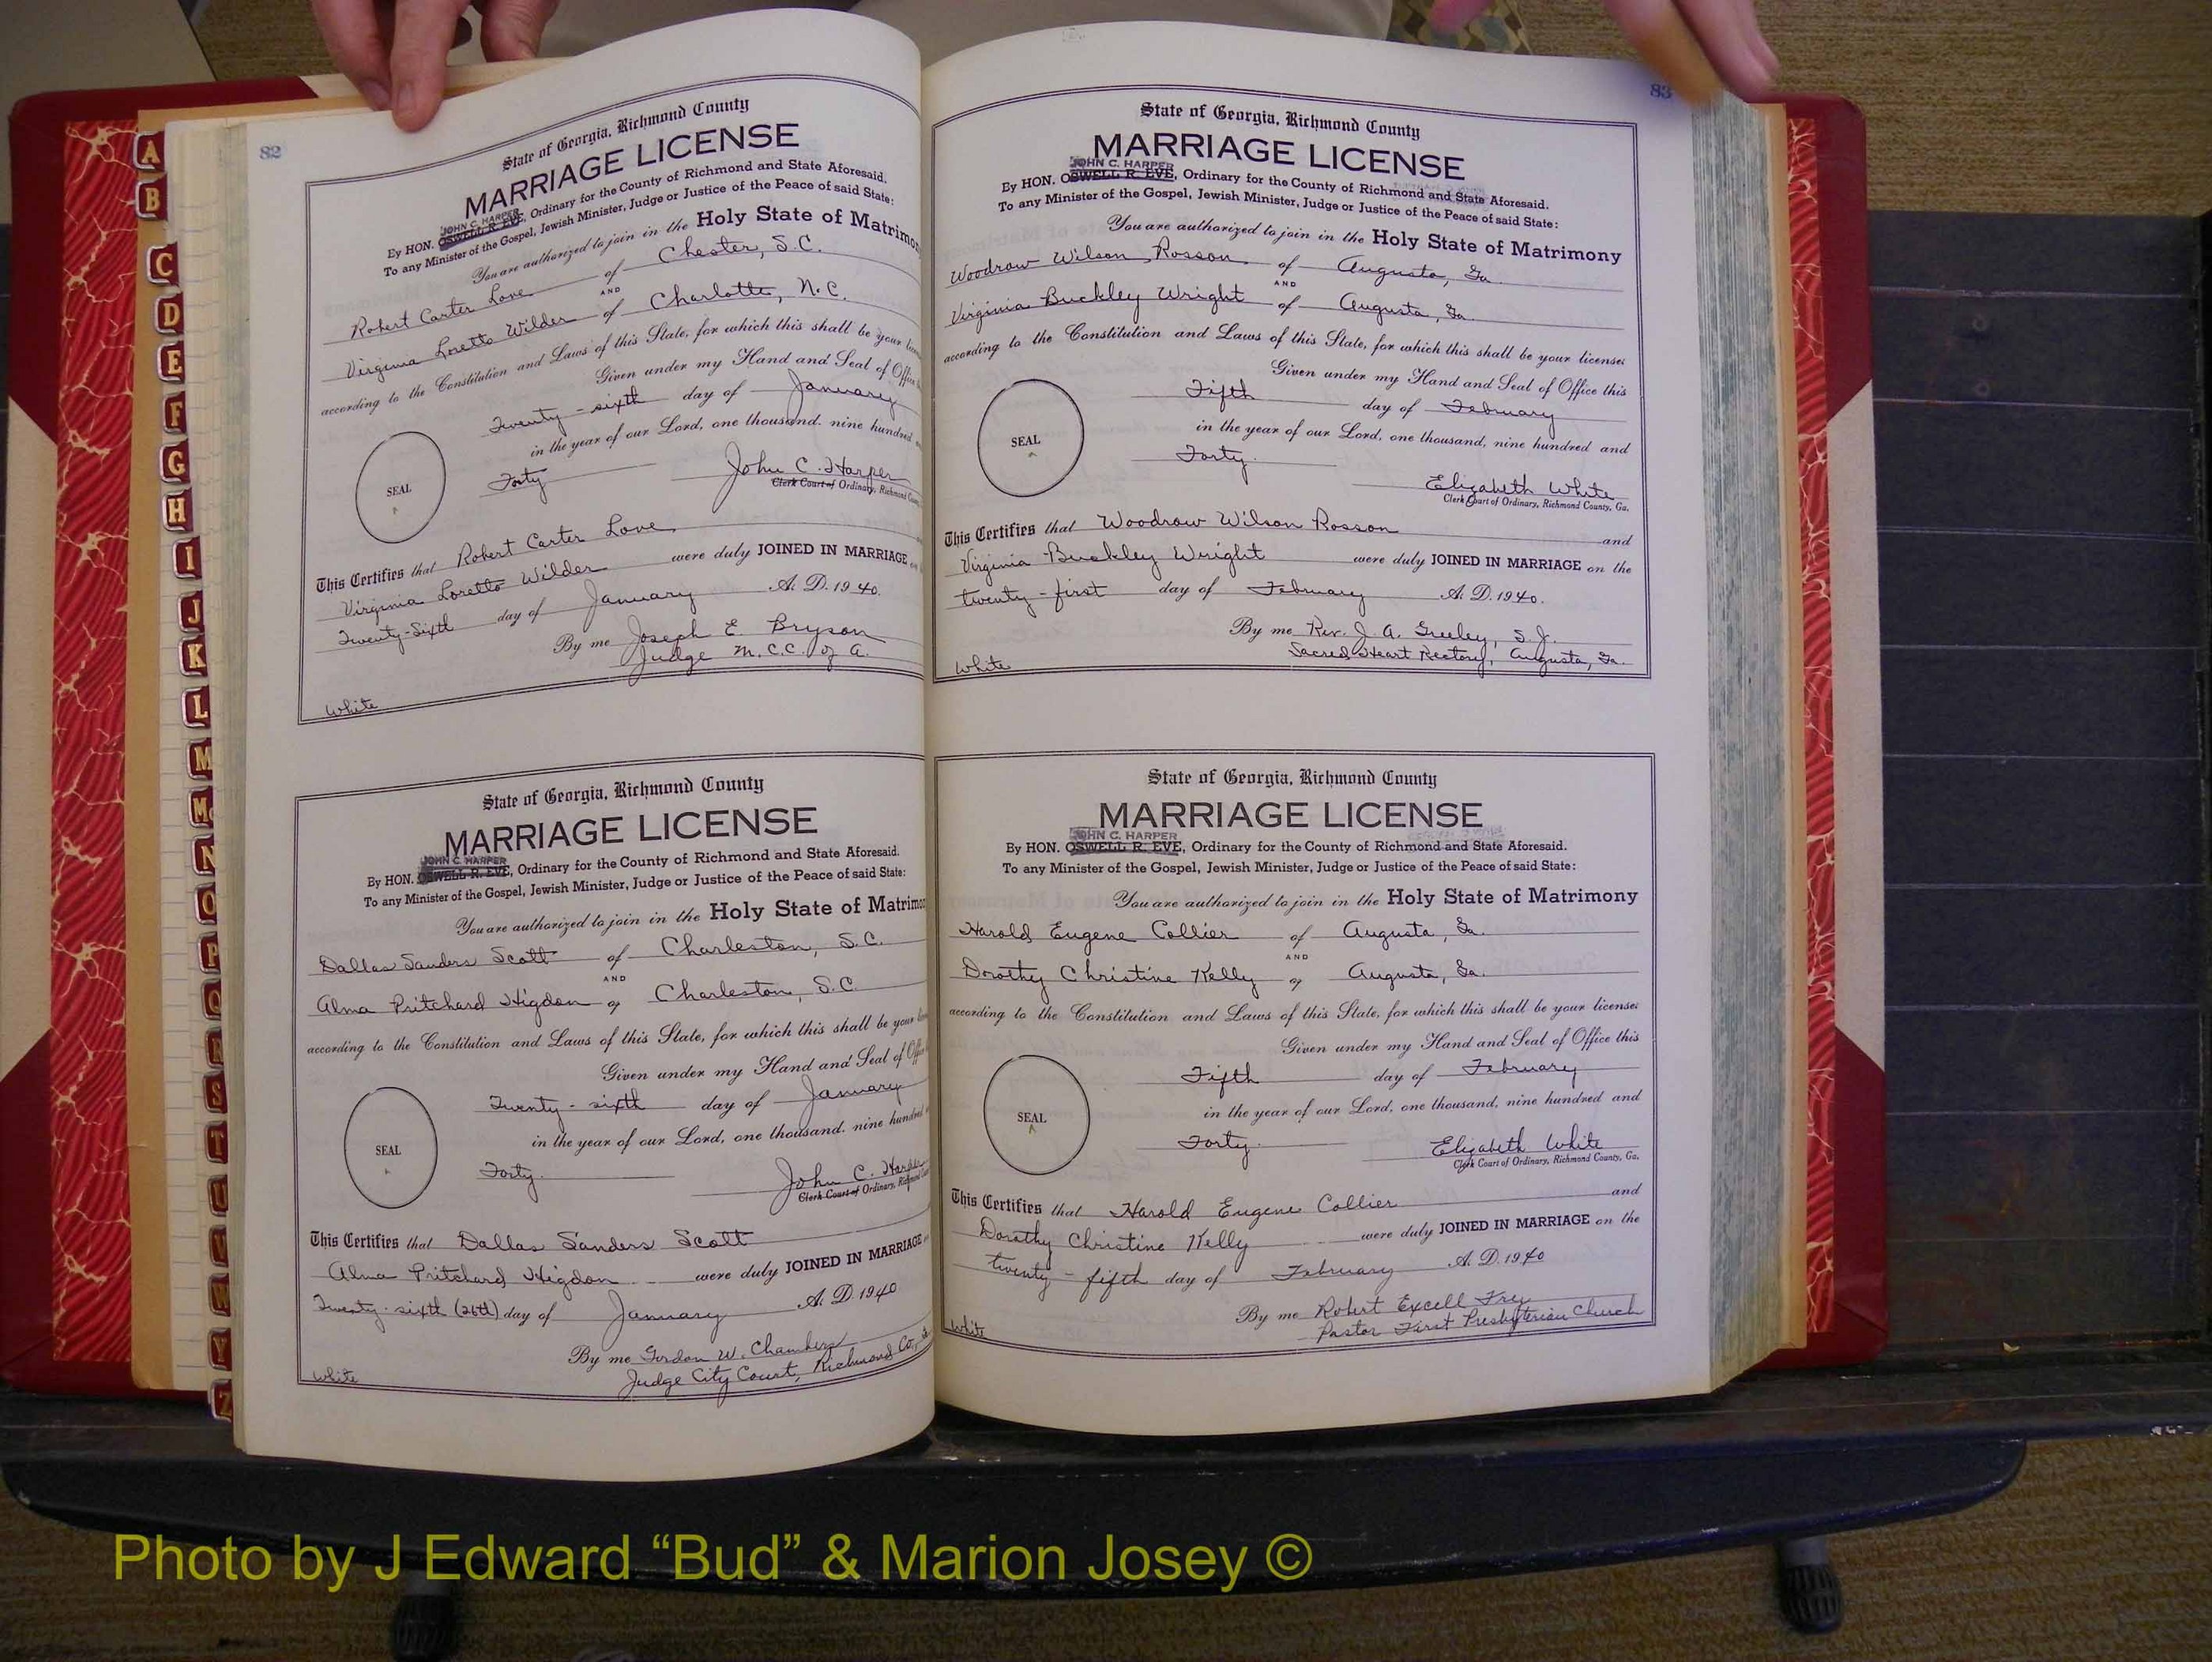 82
State of Georgia, Richmond County
MARRIAGE LICENSE
JOHN C. HARPER
By HON. OSWELL R. EVE, Ordinary for the County of Richmond and State Aforesaid.
To any Minister of the Gospel, Jewish Minister, Judge or Justice of the Peace of said State:
You are authorized to join in the Holy State of Matrimo
Robert Carter Love of Chester, S.C.
AND
Virginia Loretto Wilder of Charlotte, N.C.
according to the Constitution and Laws of this State, for which this shall be your
Given under my Hand and Seal of Office
Twenty-sixth day of January
in the year of our Lord, one thousand, nine hundred
Forty
SEAL
John C. Harper
Clerk Court of Ordinary, Richmond
This Certifies that Robert Carter Love
Virginia Loretto Wilder were duly JOINED IN MARRIAGE
Twenty-Sixth day of January A. D. 1940.
By me Joseph E. Bryson
Judge M.C.C. of A.
White
State of Georgia, Richmond County
MARRIAGE LICENSE
JOHN C. HARPER
By HON. OSWELL R. EVE, Ordinary for the County of Richmond and State Aforesaid.
To any Minister of the Gospel, Jewish Minister, Judge or Justice of the Peace of said State:
You are authorized to join in the Holy State of Matrimo
Dallas Sanders Scott of Charleston, S.C.
AND
Alma Pritchard Higdon of Charleston, S.C.
according to the Constitution and Laws of this State, for which this shall be your
Given under my Hand and Seal of
Twenty-sixth day of January
in the year of our Lord, one thousand, nine hundred
Forty.
SEAL
John C. Harper
Clerk Court of Ordinary, Richmond
This Certifies that Dallas Sanders Scott
Alma Pritchard Higdon were duly JOINED IN MARRIAGE
Twenty-sixth (26th) day of January A. D. 1940
By me Gordon W. Chambers
Judge City Court, Richmond Co.,
White
83
State of Georgia, Richmond County
MARRIAGE LICENSE
JOHN C. HARPER
By HON. OSWELL R. EVE, Ordinary for the County of Richmond and State Aforesaid.
To any Minister of the Gospel, Jewish Minister, Judge or Justice of the Peace of said State:
You are authorized to join in the Holy State of Matrimony
Woodrow Wilson Rosson of Augusta, Ga.
AND
Virginia Buckley Wright of Augusta, Ga.
according to the Constitution and Laws of this State, for which this shall be your license:
Given under my Hand and Seal of Office this
Fifth day of February
in the year of our Lord, one thousand, nine hundred and
Forty.
SEAL
Elizabeth White
Clerk Court of Ordinary, Richmond County, Ga.
This Certifies that Woodrow Wilson Rosson and
Virginia Buckley Wright were duly JOINED IN MARRIAGE on the
twenty-first day of February A. D. 1940.
By me Rev. J. A. Greeley, S.J.
Sacred Heart Rectory, Augusta, Ga.
White
State of Georgia, Richmond County
MARRIAGE LICENSE
JOHN C. HARPER
By HON. OSWELL R. EVE, Ordinary for the County of Richmond and State Aforesaid.
To any Minister of the Gospel, Jewish Minister, Judge or Justice of the Peace of said State:
You are authorized to join in the Holy State of Matrimony
Harold Eugene Collier of Augusta, Ga.
AND
Dorothy Christine Kelly of Augusta, Ga.
according to the Constitution and Laws of this State, for which this shall be your license:
Given under my Hand and Seal of Office this
Fifth day of February
in the year of our Lord, one thousand, nine hundred and
Forty.
SEAL
Elizabeth White
Clerk Court of Ordinary, Richmond County, Ga.
This Certifies that Harold Eugene Collier and
Dorothy Christine Kelly were duly JOINED IN MARRIAGE on the
twenty-fifth day of February A. D. 1940
By me Robert Excell Fry
Pastor First Presbyterian Church
White
A
B
C
D
E
F
G
H
I
J
K
L
M
Mc
N
O
P
Q
R
S
T
U
V
W
Y
Z
Photo by J Edward “Bud” & Marion Josey ©